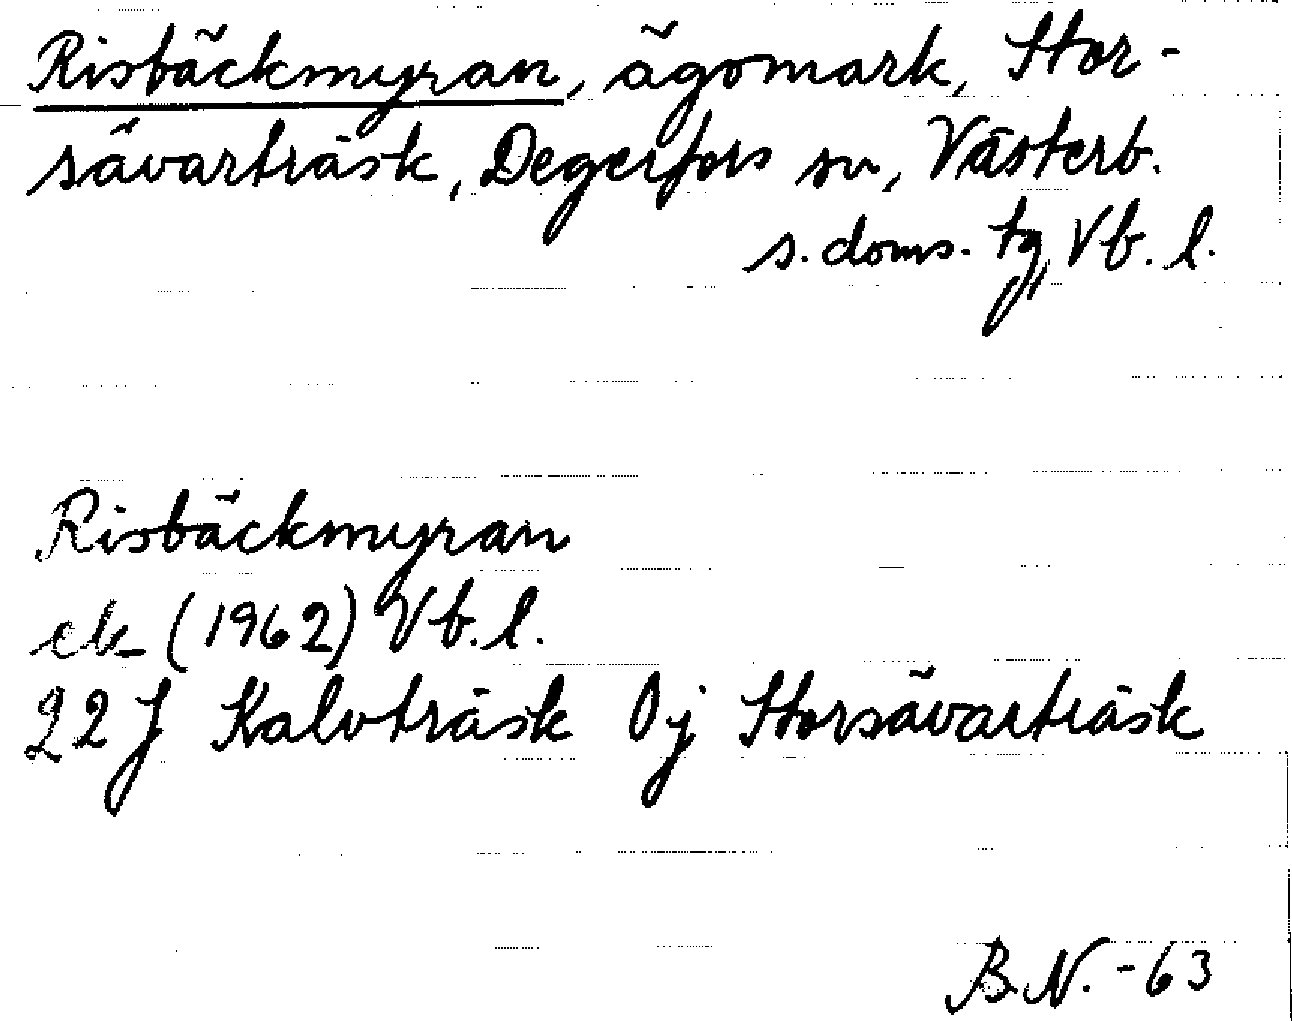 Risbäckmyran, ägomark, Stor-
sävarträsk, Degerfors sn, Västerb.
s. doms. tg, Vb. l.
Risbäckmyran
ek (1962) Vb. l.
22J Kalvträsk 0j Storsävarträsk
B.N. -63